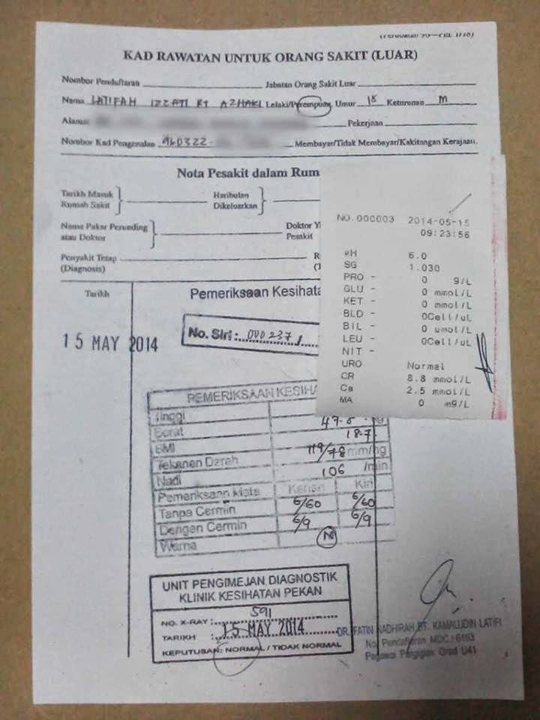 KAD RAWATAN UNTUK ORANG SAKIT (LUAR)
Nombor Pendaftaran Jabatan Orang Sakit Luar
Nama LATIFAH IZZATI BT AZHARI Lelaki/Perempuan Umur 18 Keturunan M
Alamat Pekerjaan
Nombor Kad Pengenalan 960322- Membayar/Tidak Membayar/Kakitangan Kerajaan.
Nota Pesakit dalam Rum
Tarikh Masuk
Rumah Sakit
Haribulan
Dikeluarkan
Nama Pakar Perunding
atau Doktor
Doktor Y
Pesakit
Penyakit Tetap
(Diagnosis)
Tarikh
Pemeriksaan Kesihata
No. Siri: 000237/
15 MAY 2014
NO.000003 2014-05-15
09:23:56
PH 6.0
SG 1.030
PRO - 0 g/L
GLU - 0 mmol/L
KET - 0 mmol/L
BLD - 0Cell/uL
BIL - 0 umol/L
LEU - 0Cell/uL
NIT -
URO Normal
CR 8.8 mmol/L
Ca 2.5 mmol/L
MA 0 mg/L
PEMERIKSAAN KESIHA
Tinggi
Berat 47.8 kg
BMI 18.7
Tekanan Darah 119/78 mm/hg
Nadi 106 /min
Pemeriksaan Mata Kanan Kiri
Tanpa Cermin 6/60 6/60
Dengan Cermin 6/9 6/9
Warna N
UNIT PENGIMEJAN DIAGNOSTIK
KLINIK KESIHATAN PEKAN
NO. X-RAY: 591
TARIKH: 15 MAY 2014
KEPUTUSAN: NORMAL / TIDAK NORMAL
DR. FATIN NADHIRAH BT. KAMALUDIN LATIFI
No. Pendaftaran MDC: 6193
Pegawai Pergigian Gred U41